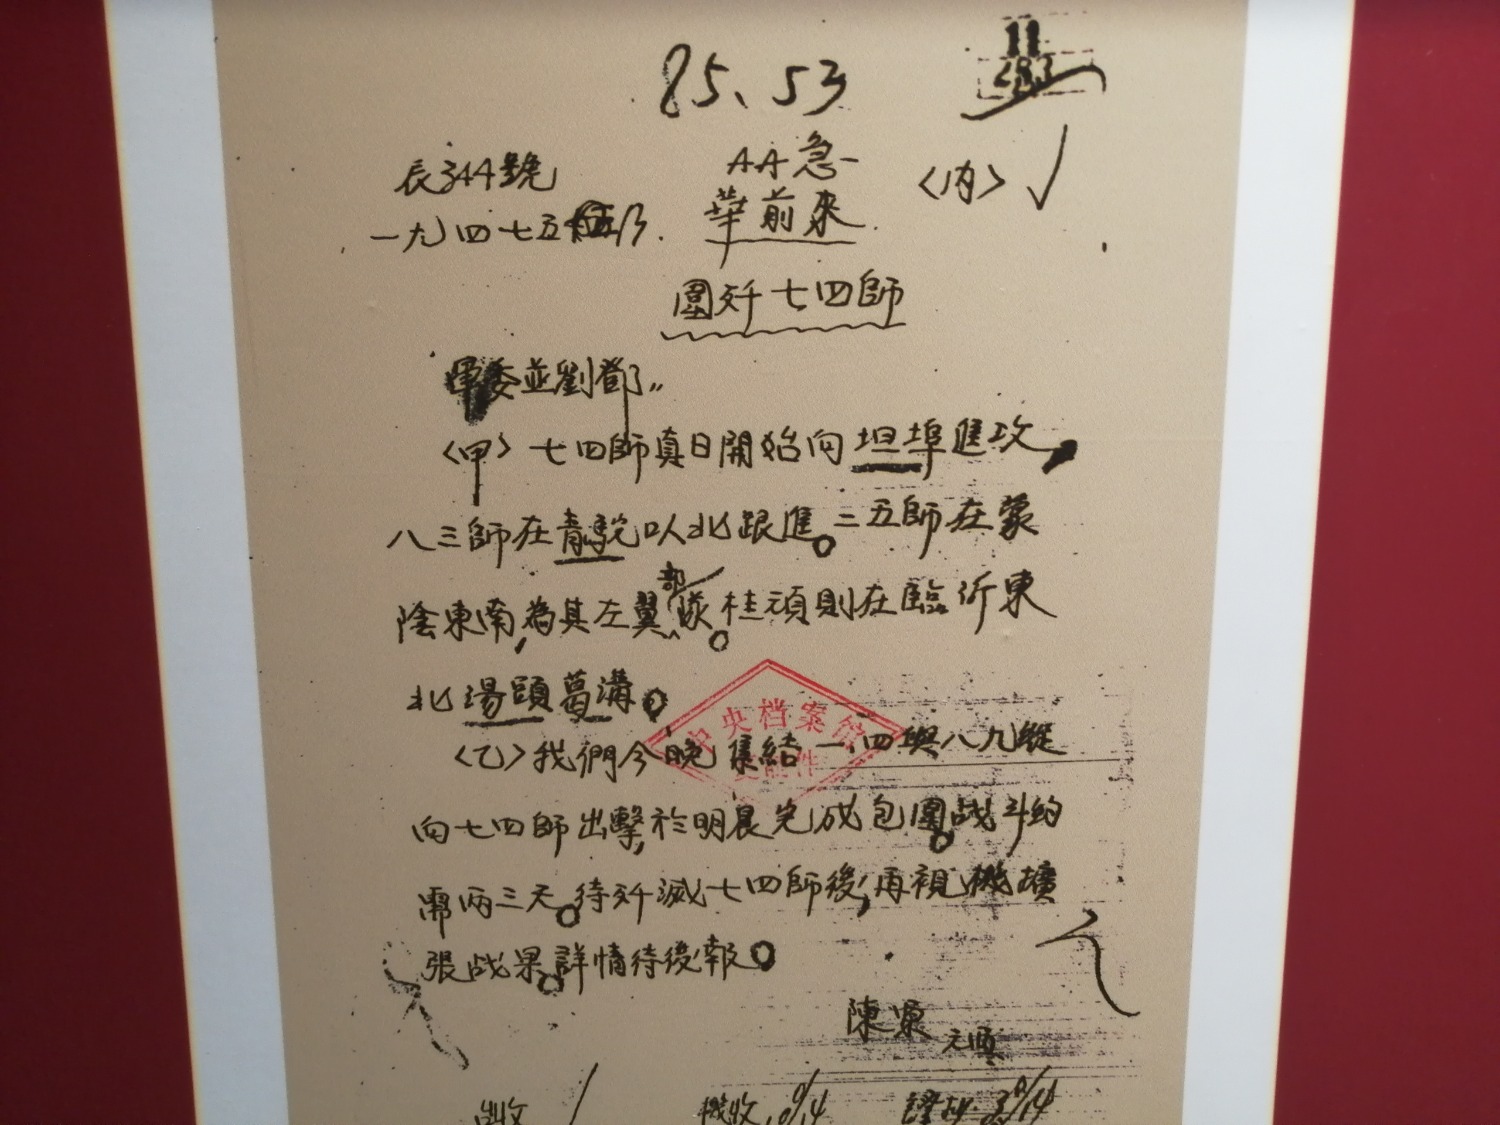 85、53
11
AA急
〈內〉
長344號
華前來
一九四七五
圍歼七四師
軍委並劉鄧"
〈甲〉七四師真日開始向坦埠進攻,
八三師在青駝以北跟進。二五師在蒙
陰東南,為其左翼部隊。桂頑則在臨沂東
北湯頭葛溝。
中央档案馆
〈乙〉我們今晚集結一、四與八九縱
向七四師出擊,於明晨完成包圍。战斗約
需两三天。待歼滅七四師後,再視機擴
張战果。詳情待後報。
陳軍
機收